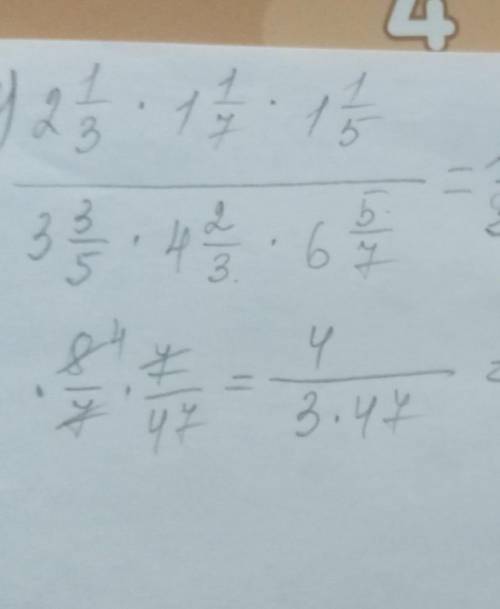 4
2 1/3 · 1 1/7 · 1 1/5
3 3/5 · 4 2/3 · 6 5/7 =
· 8/7 · 7/47 = 4/(3·47)
4